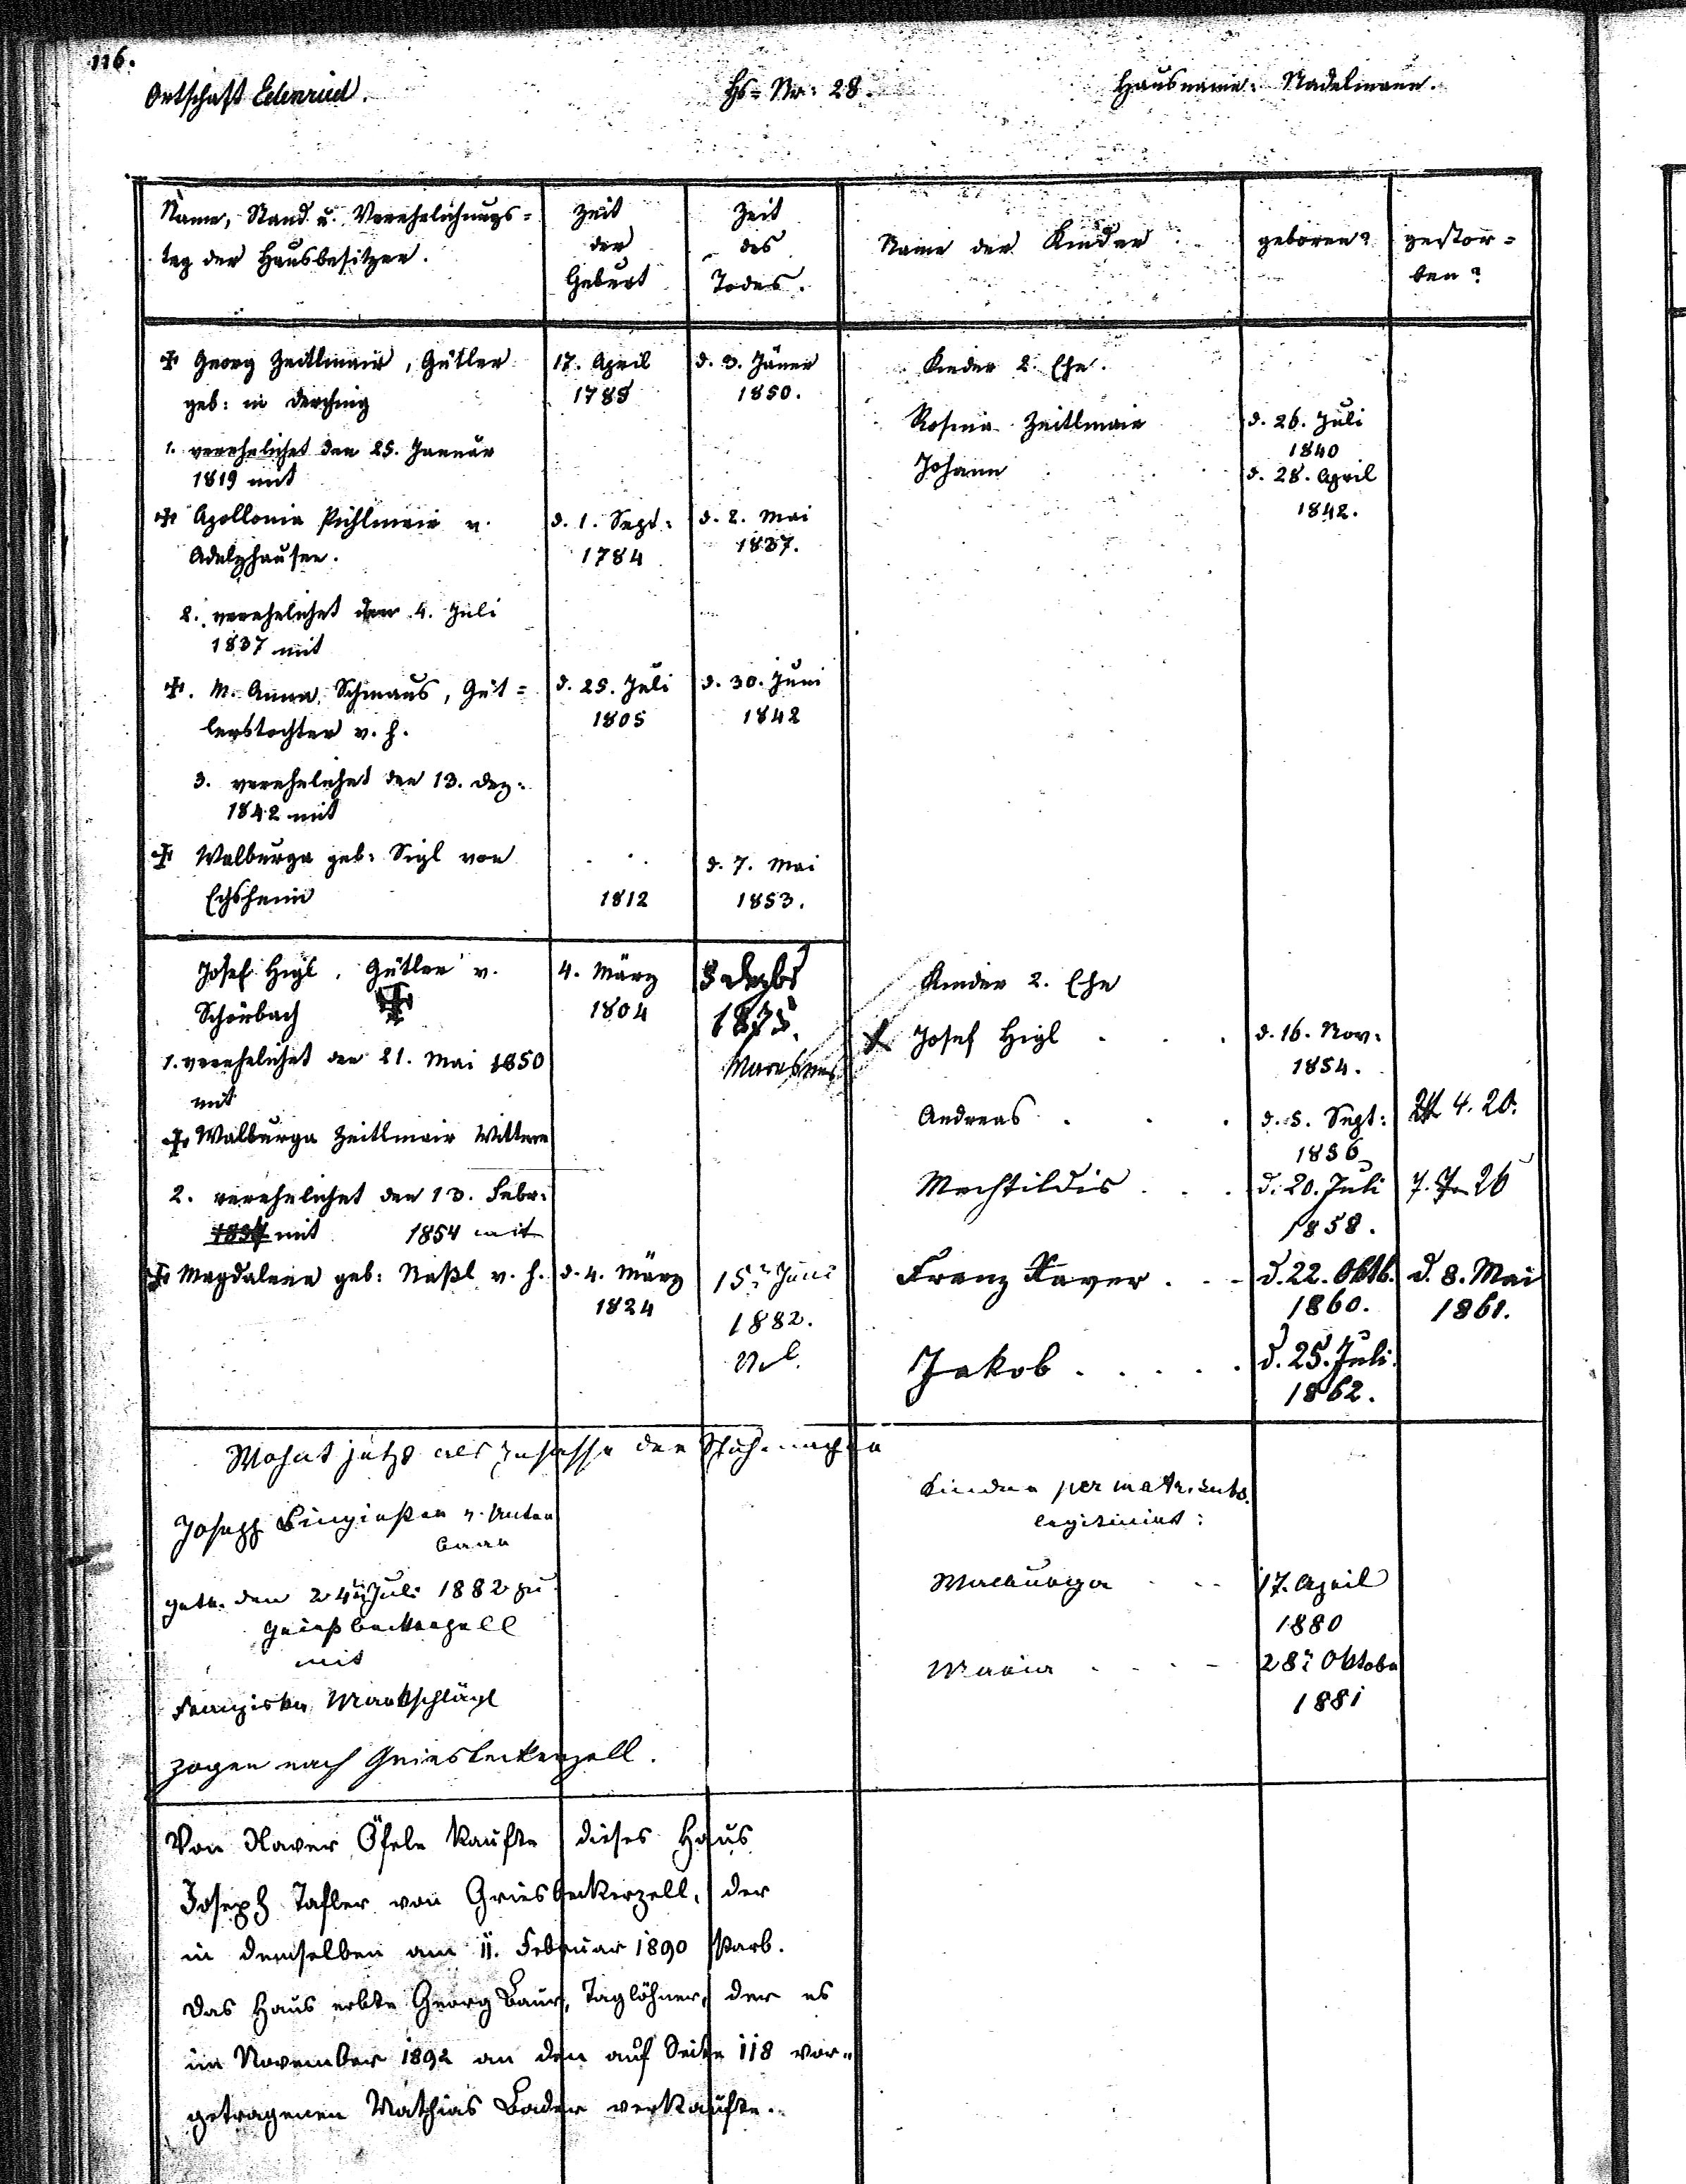 116.
Ortschaft Edenried.
Hs=Nr: 28.
Hausname: Stadelmann.
Name, Stand u. Verehelichungs=
tag der Hausbesitzer.
Zeit
der
Geburt
Zeit
des
Todes.
Name der Kinder
geboren?
gestor=
ben?
Georg Zeitlmair, Gütler
geb: in Derching
17. April
1789
d. 3. Jäner
1850.
1. verehelichet den 25. Januar
1819 mit
Apollonia Pichlmair v.
Adelzhausen.
d. 1. Sept:
1784
d. 2. Mai
1837.
2. verehelichet den 4. Juli
1837 mit
M. Anna Schmaus, Güt=
lerstochter v. h.
d. 25. Juli
1805
d. 30. Juni
1842
3. verehelichet den 13. Dez:
1842 mit
Walburga geb: Sigl von
Echsheim
1812
d. 7. Mai
1853.
Kinder 2. Ehe.
Rosina Zeitlmair
d. 26. Juli
1840
Johann
d. 28. April
1842.
Josef Higl, Gütler v.
Schönbach
4. März
1804
8 Dezbr
1875.
Marasmus
1. verehelichet den 21. Mai 1850
mit
Walburga Zeitlmair Wittwe
2. verehelichet den 13. Febr:
mit 1854 mit
Magdalena geb: Naßl v. h.
d. 4. März
1824
15. Juni
1882.
Kinder 2. Ehe
Josef Higl . . .
d. 16. Nov:
1854.
Andreas . . .
d. 5. Sept:
1856
4. 20.
Mechtildis . . .
d. 20. Juli
1858.
26
Franz Xaver . . -
d. 22. Oktb.
1860.
d. 8. Mai
1861.
Jakob . . . . .
d. 25. Juli.
1862.
Wohnt jetzt als Insasse der
Joseph v. Unter
getr. den 24. Juli 1882 zu
Griesbeckerzell
mit
Franziska Markschlägl
zogen nach Griesbeckerzell.
Kinder per matr. subs.
legitimirt:
Walburga . . .
17. April
1880
Maria . . . -
28. Oktober
1881
Von Xaver Öfele kaufte dieses Haus
Joseph Tafler von Griesbeckerzell, der
in demselben am 11. Februar 1890 starb.
Das Haus erbte Georg Baur, Taglöhner, der es
im November 1892 an den auf Seite 118 vor=
getragenen Mathias Bader verkaufte.